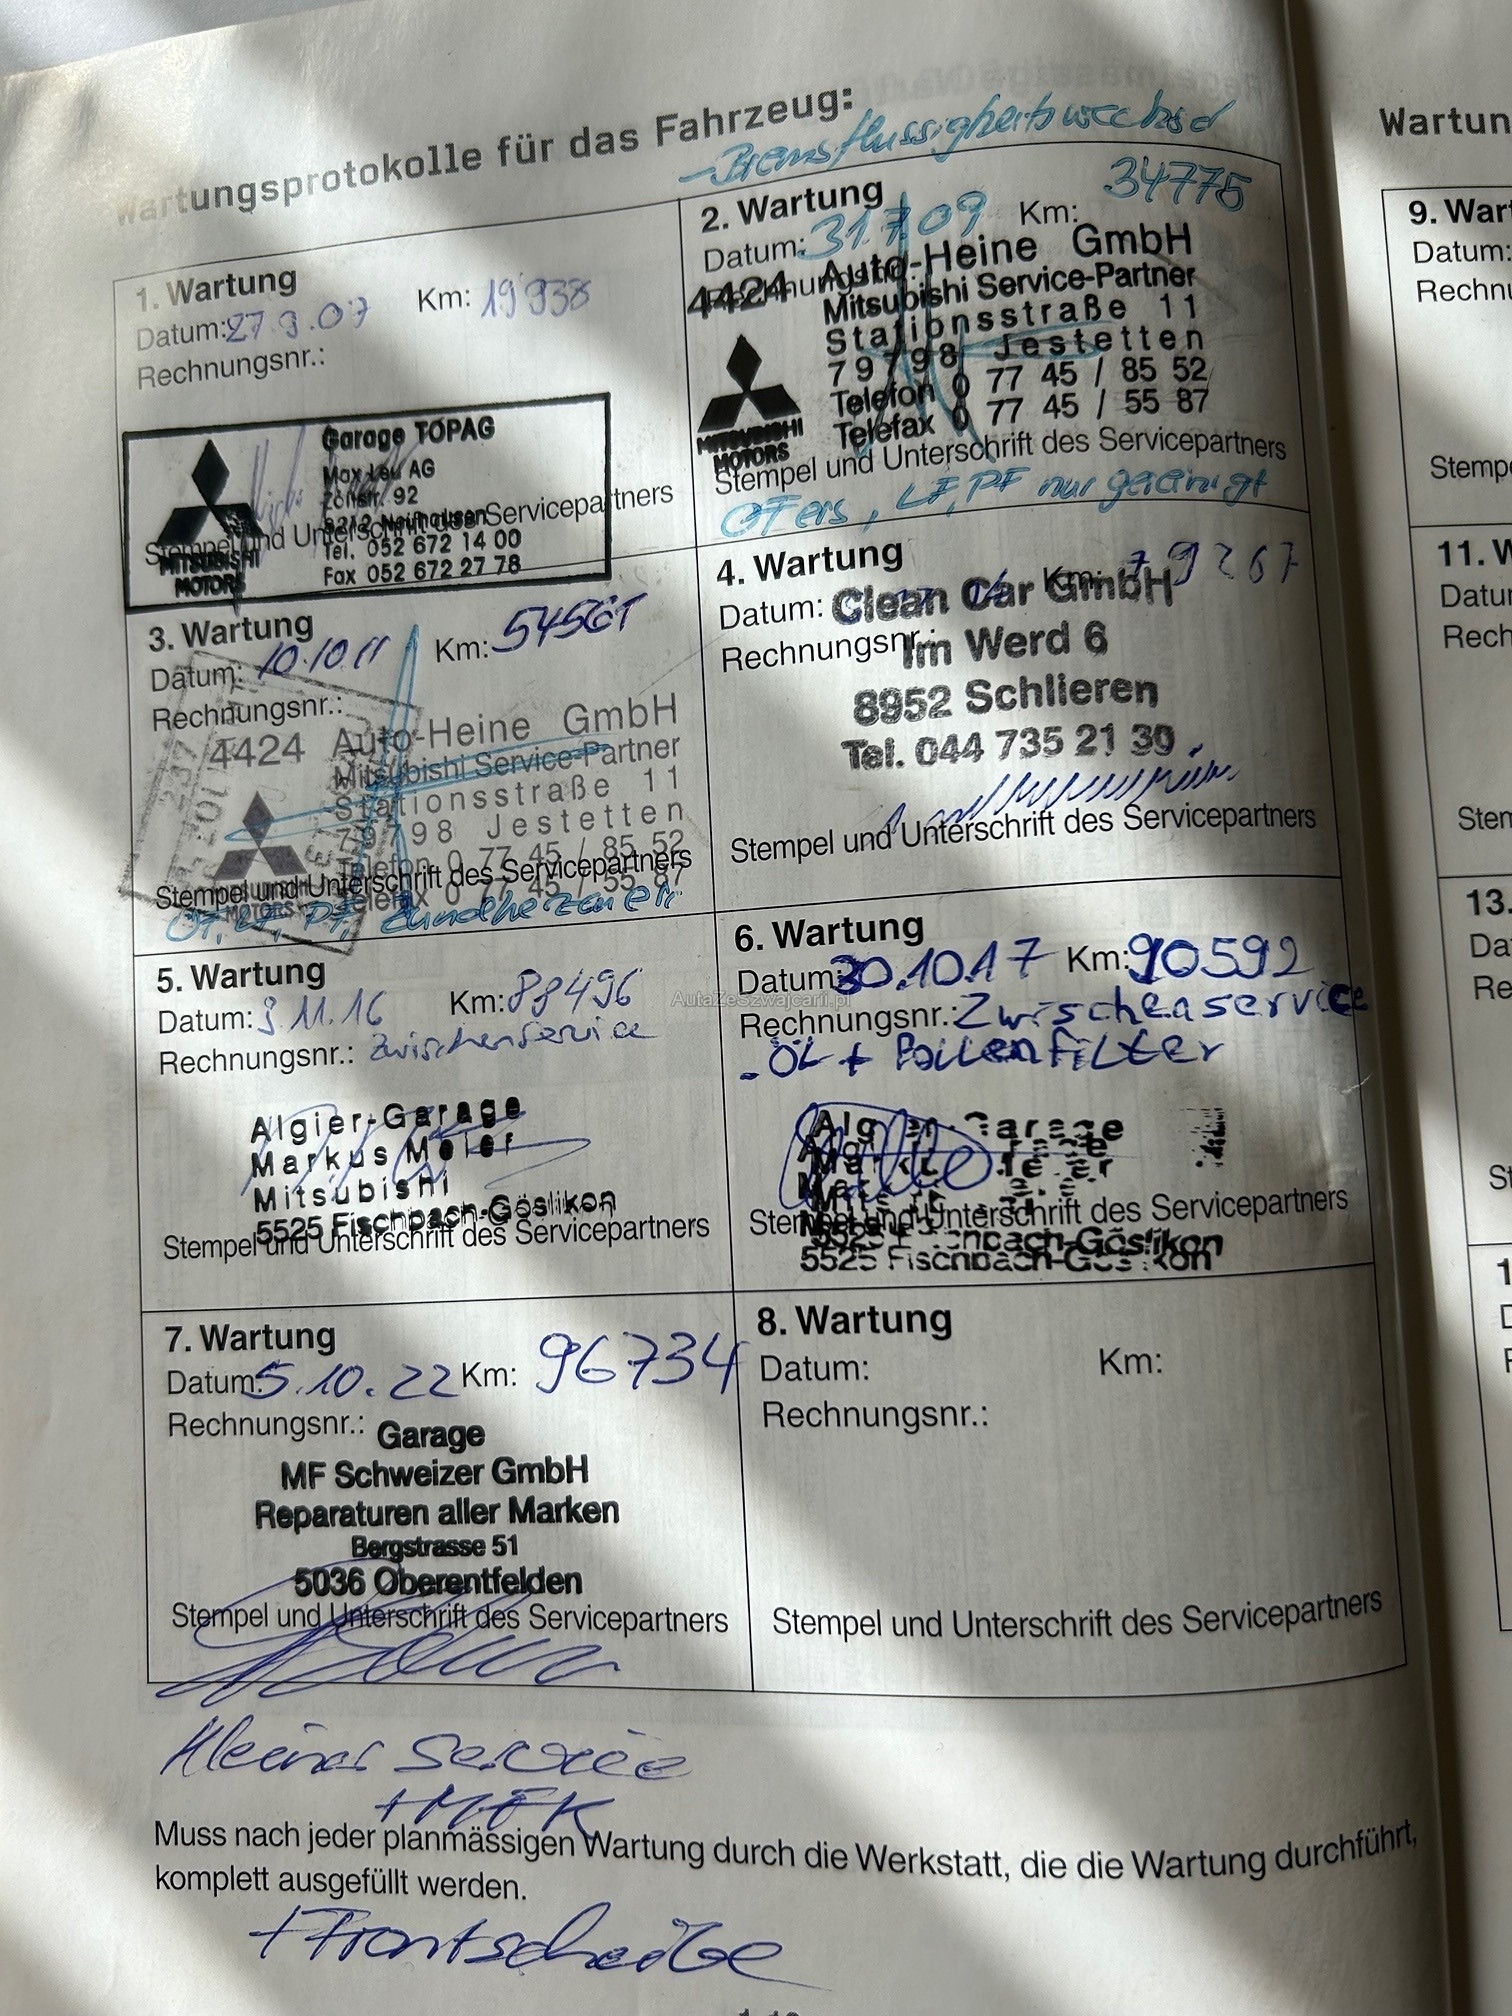 Wartungsprotokolle für das Fahrzeug:
- Bremsflüssigkeitswechsel
1. Wartung
Datum: 27.9.07 Km: 19938
Rechnungsnr.:
Garage TOPAG
Max Leu AG
Zollstr. 92
8212 Neuhausen
Tel. 052 672 14 00
Fax 052 672 27 78
MITSUBISHI
MOTORS
Stempel und Unterschrift des Servicepartners
2. Wartung
Datum: 31.7.09 Km: 34775
Rechnungsnr.:
4424 Auto-Heine GmbH
Mitsubishi Service-Partner
Stationsstraße 11
79798 Jestetten
Telefon 0 77 45 / 85 52
Telefax 0 77 45 / 55 87
MITSUBISHI
MOTORS
Stempel und Unterschrift des Servicepartners
ÖFers, LF, PF nur gereinigt
3. Wartung
Datum: 10.10.11 Km: 54561
Rechnungsnr.:
4424 Auto-Heine GmbH
Mitsubishi Service-Partner
Stationsstraße 11
79798 Jestetten
Telefon 0 77 45 / 85 52
Telefax 0 77 45 / 55 87
MOTORS
Stempel und Unterschrift des Servicepartners
ÖF, LF, PF,
4. Wartung
Datum: Km: 79267
Rechnungsnr.:
Clean Car GmbH
Im Werd 6
8952 Schlieren
Tel. 044 735 21 39
Stempel und Unterschrift des Servicepartners
5. Wartung
Datum: 3.11.16 Km: 88496
Rechnungsnr.: Zwischenservice
Algier-Garage
Markus Meier
Mitsubishi
5525 Fischbach-Göslikon
Stempel und Unterschrift des Servicepartners
6. Wartung
Datum: 30.10.17 Km: 90592
Rechnungsnr.: Zwischenservice
- ÖL + Pollenfilter
Stempel und Unterschrift des Servicepartners
5525 Fischbach-Göslikon
7. Wartung
Datum: 5.10.22 Km: 96734
Rechnungsnr.:
Garage
MF Schweizer GmbH
Reparaturen aller Marken
Bergstrasse 51
5036 Oberentfelden
Stempel und Unterschrift des Servicepartners
8. Wartung
Datum: Km:
Rechnungsnr.:
Stempel und Unterschrift des Servicepartners
Kleiner Service
+ MFK
Muss nach jeder planmässigen Wartung durch die Werkstatt, die die Wartung durchführt,
komplett ausgefüllt werden.
+ Frontscheibe
AutaZeSzwajcarii.pl
9.
Datum:
11.
13.